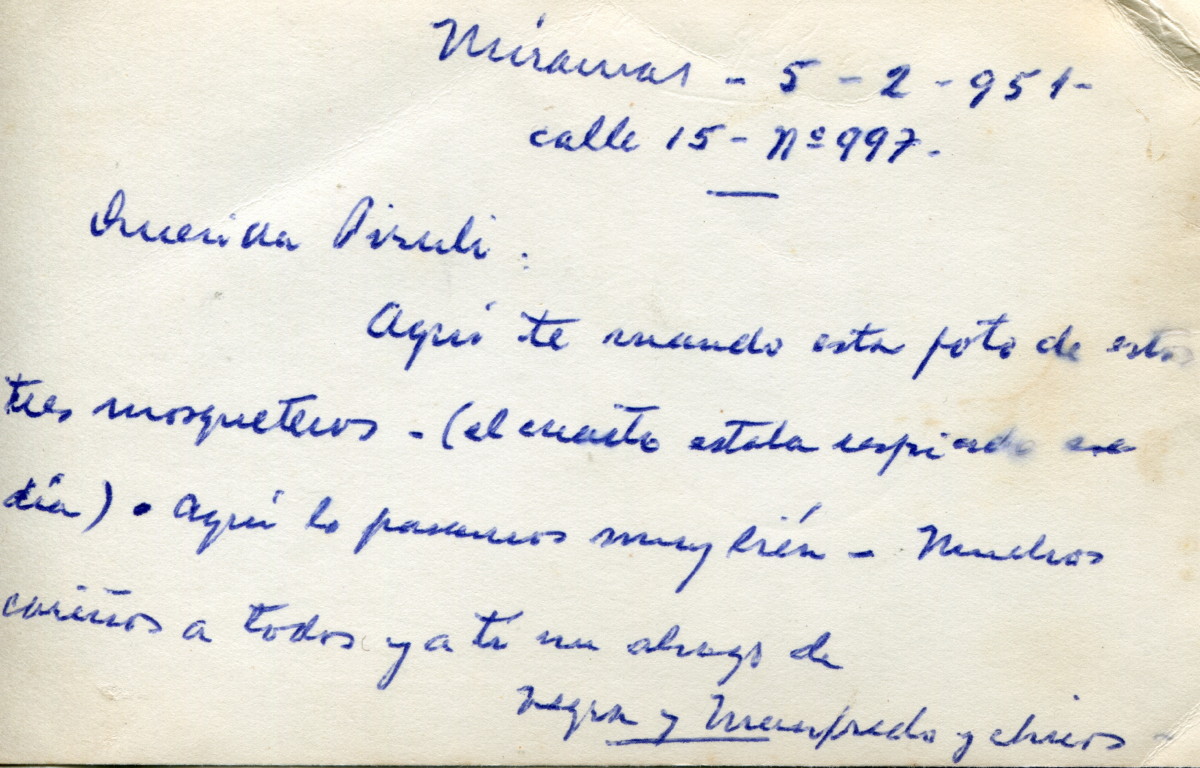 Miramar - 5 - 2 - 951 -
calle 15 - Nº 997 -
Querida Piruli :
Aquí te mando esta foto de estos
tres mosqueteros - (el cuarto estaba resfriado ese
día) . Aquí lo pasamos muy bién - Muchos
cariños a todos y a ti un abrazo de
Negra y Manfredo y chicos -